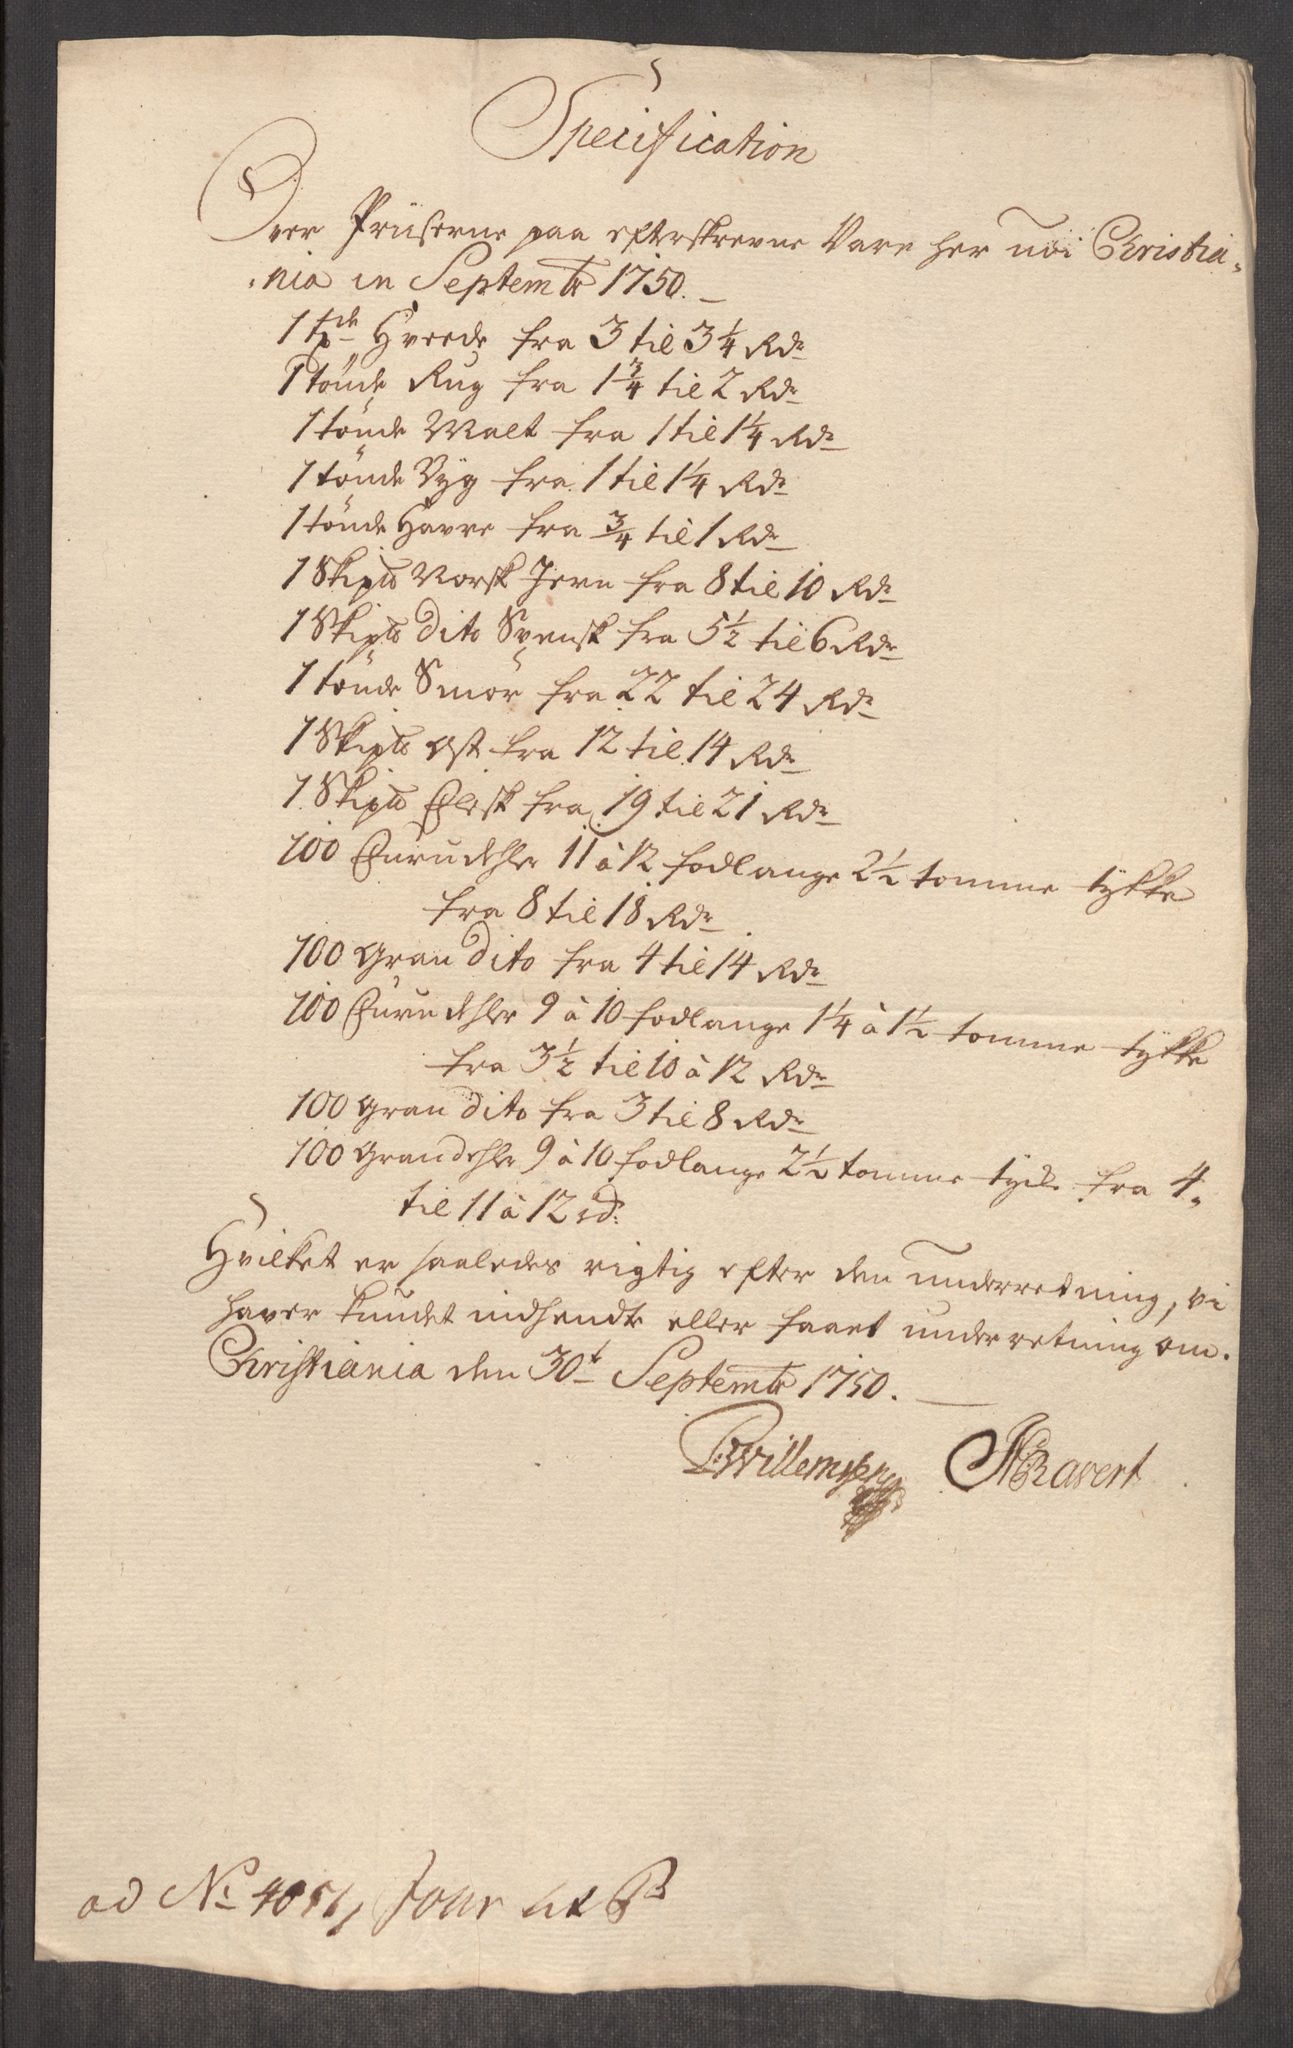 Specification
Over Priiserne paa efterskrevne Vare her udi Christia-
-nia in Septembr 1750.
1 tde Hvede fra 3 til 3 1/4 Rdr
1 tönde Rug fra 1 3/4 til 2 Rdr
1 tönde Malt fra 1 til 1 1/4 Rdr
1 tönde Byg fra 1 til 1 1/4 Rdr
1 tönde Havre fra 3/4 til 1 Rdr
1 Skip℔ Norsk Jern fra 8 til 10 Rdr
1 Skip℔ dito Svensk fra 5 1/2 til 6 Rdr
1 tönde Smör fra 22 til 24 Rdr
1 Skip℔ Ost fra 12 til 14 Rdr
1 Skip℔ Flesk fra 19 til 21 Rdr
100 Furu dehler 11 à 12 fodlange 2 1/2 tomme tykke
fra 8 til 18 Rdr
100 Gran dito fra 4 til 14 Rdr
100 Furu dehler 9 à 10 fodlange 1 1/4 à 1 1/2 tomme tykke
fra 3 1/2 til 10 à 12 Rdr
100 Gran dito fra 3 til 8 Rdr
100 Gran dehler 9 à 10 fodlange 2 1/2 tomme tyck fra 4
til 11 à 12 rd:
Hvilket er saaledes rigtig efter den underretning, vi
haver kundet indhendte eller faaet underretning om.
Christiania den 30t Septembr 1750.
Willemsen Ravert
ad No Jour Lit B